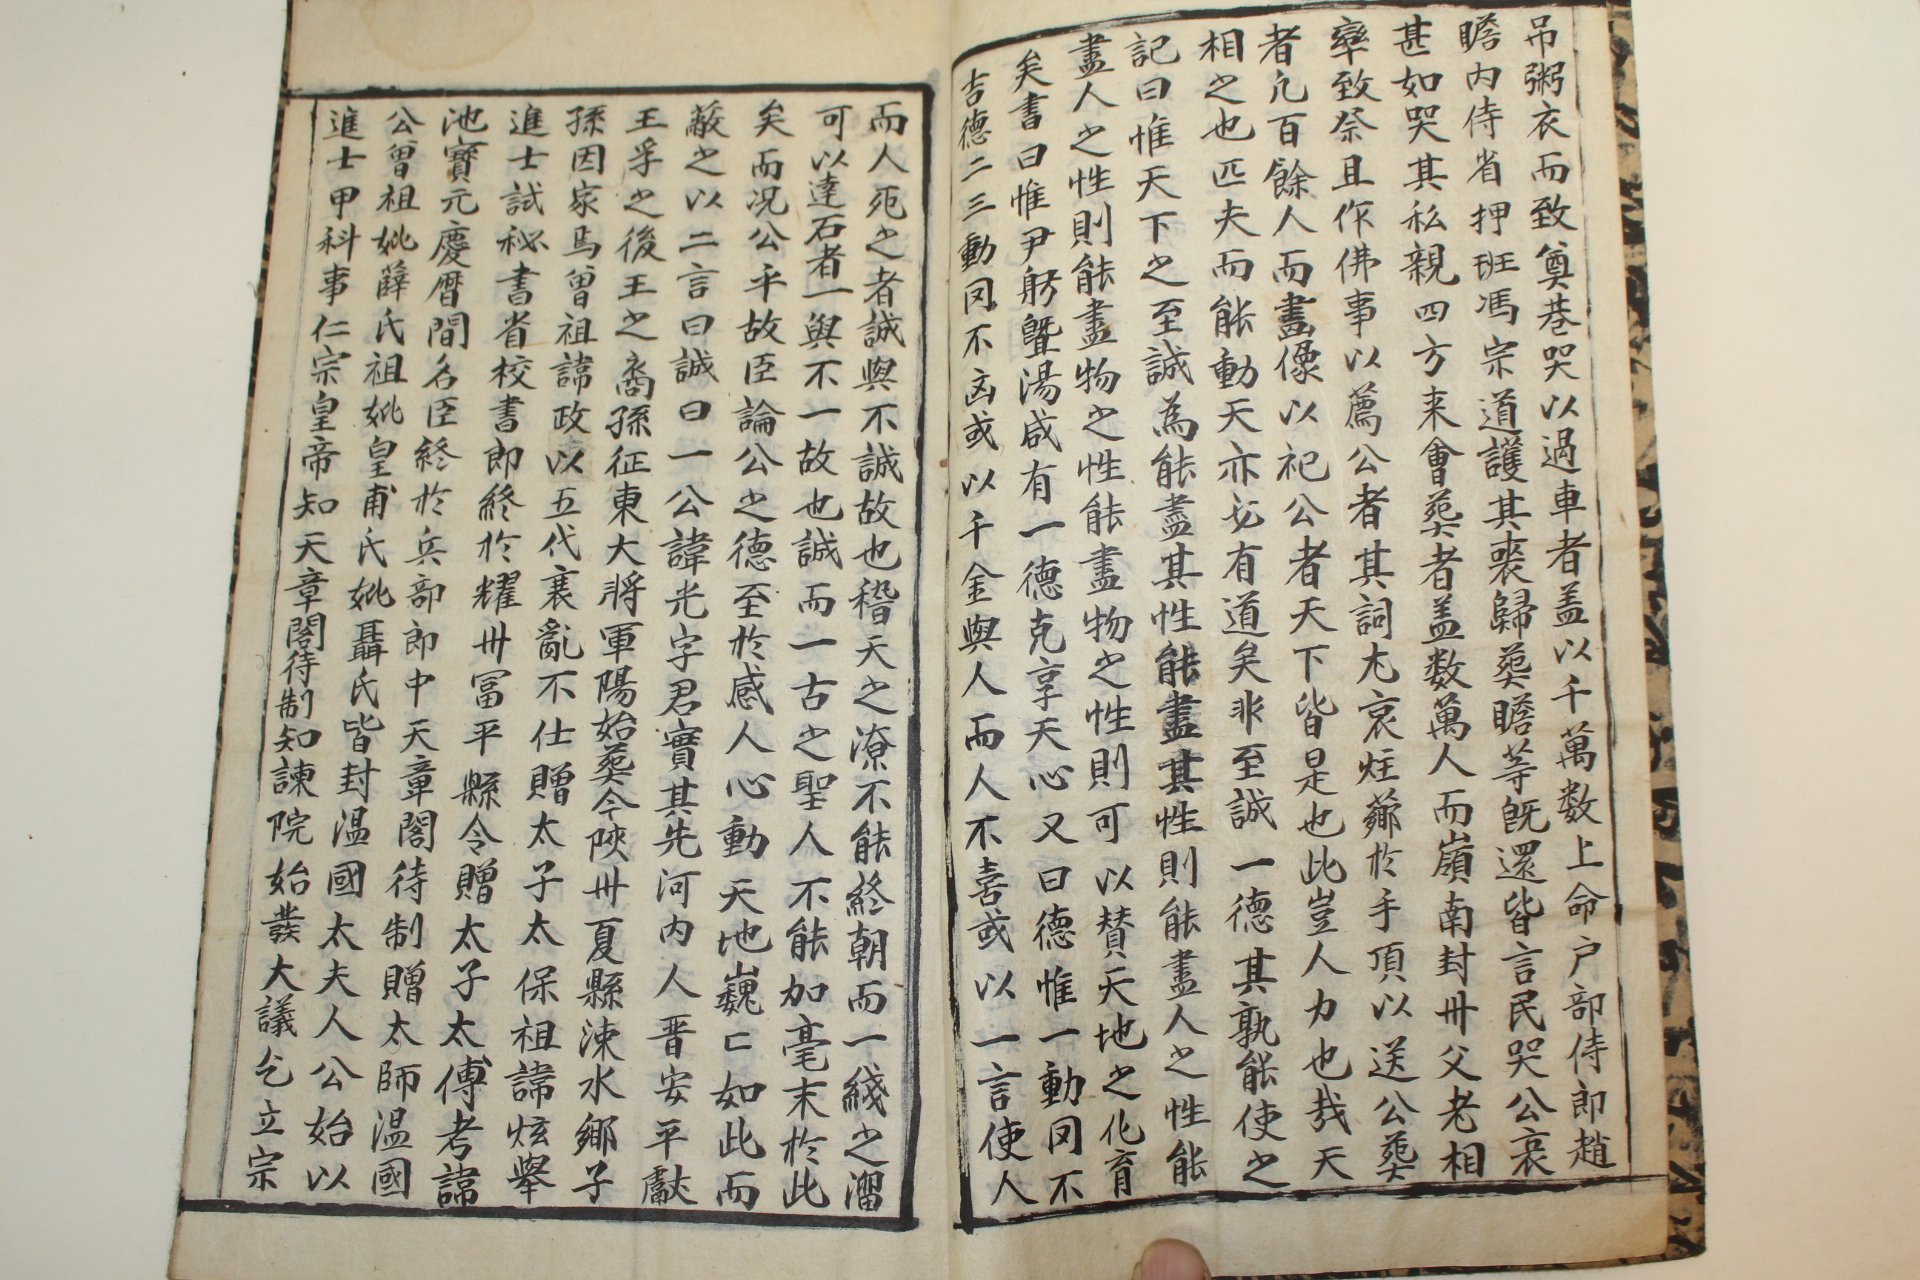 吊粥衣而致奠巷哭以過車者盖以千萬数上命户部侍郎趙
瞻內侍省押班馮宗道護其喪歸葬瞻等旣還皆言民哭公哀
甚如哭其私親四方来會葬者盖数萬人而嶺南封州父老相
率致祭且作佛事以薦公者其詞尤哀炷薌於手頂以送公葬
者凡百餘人而畫像以祀公者天下皆是也此豈人力也㦲天
相之也匹夫而能動天亦必有道矣非至誠一德其孰能使之
記曰惟天下之至誠為能盡其性能盡其性則能盡人之性能
盡人之性則能盡物之性能盡物之性則可以賛天地之化育
矣書曰惟尹躬曁湯咸有一德克享天心又曰德惟一動罔不
吉德二三動罔不凶或以千金與人而人不喜或以一言使人
而人死之者誠與不誠故也稽天之潦不能終朝而一綫之溜
可以達石者一與不一故也誠而一古之聖人不能加毫末於此
矣而况公乎故臣論公之德至於感人心動天地巍〻如此而
蔽之以二言曰誠曰一公諱光字君實其先河內人晋安平獻
王孚之後王之裔孫征東大將軍陽始葬今陜州夏縣涑水鄉子
孫因家焉曾祖諱政以五代衰亂不仕贈太子太保祖諱炫舉
進士試秘書省校書郎終於耀州冨平縣令贈太子太傅考諱
池寶元慶暦間名臣終於兵部郎中天章閣待制贈太師溫國
公曾祖妣薛氏祖妣皇甫氏妣聶氏皆封溫國太夫人公始以
進士甲科事仁宗皇帝知天章閣待制知諫院始發大議乞立宗